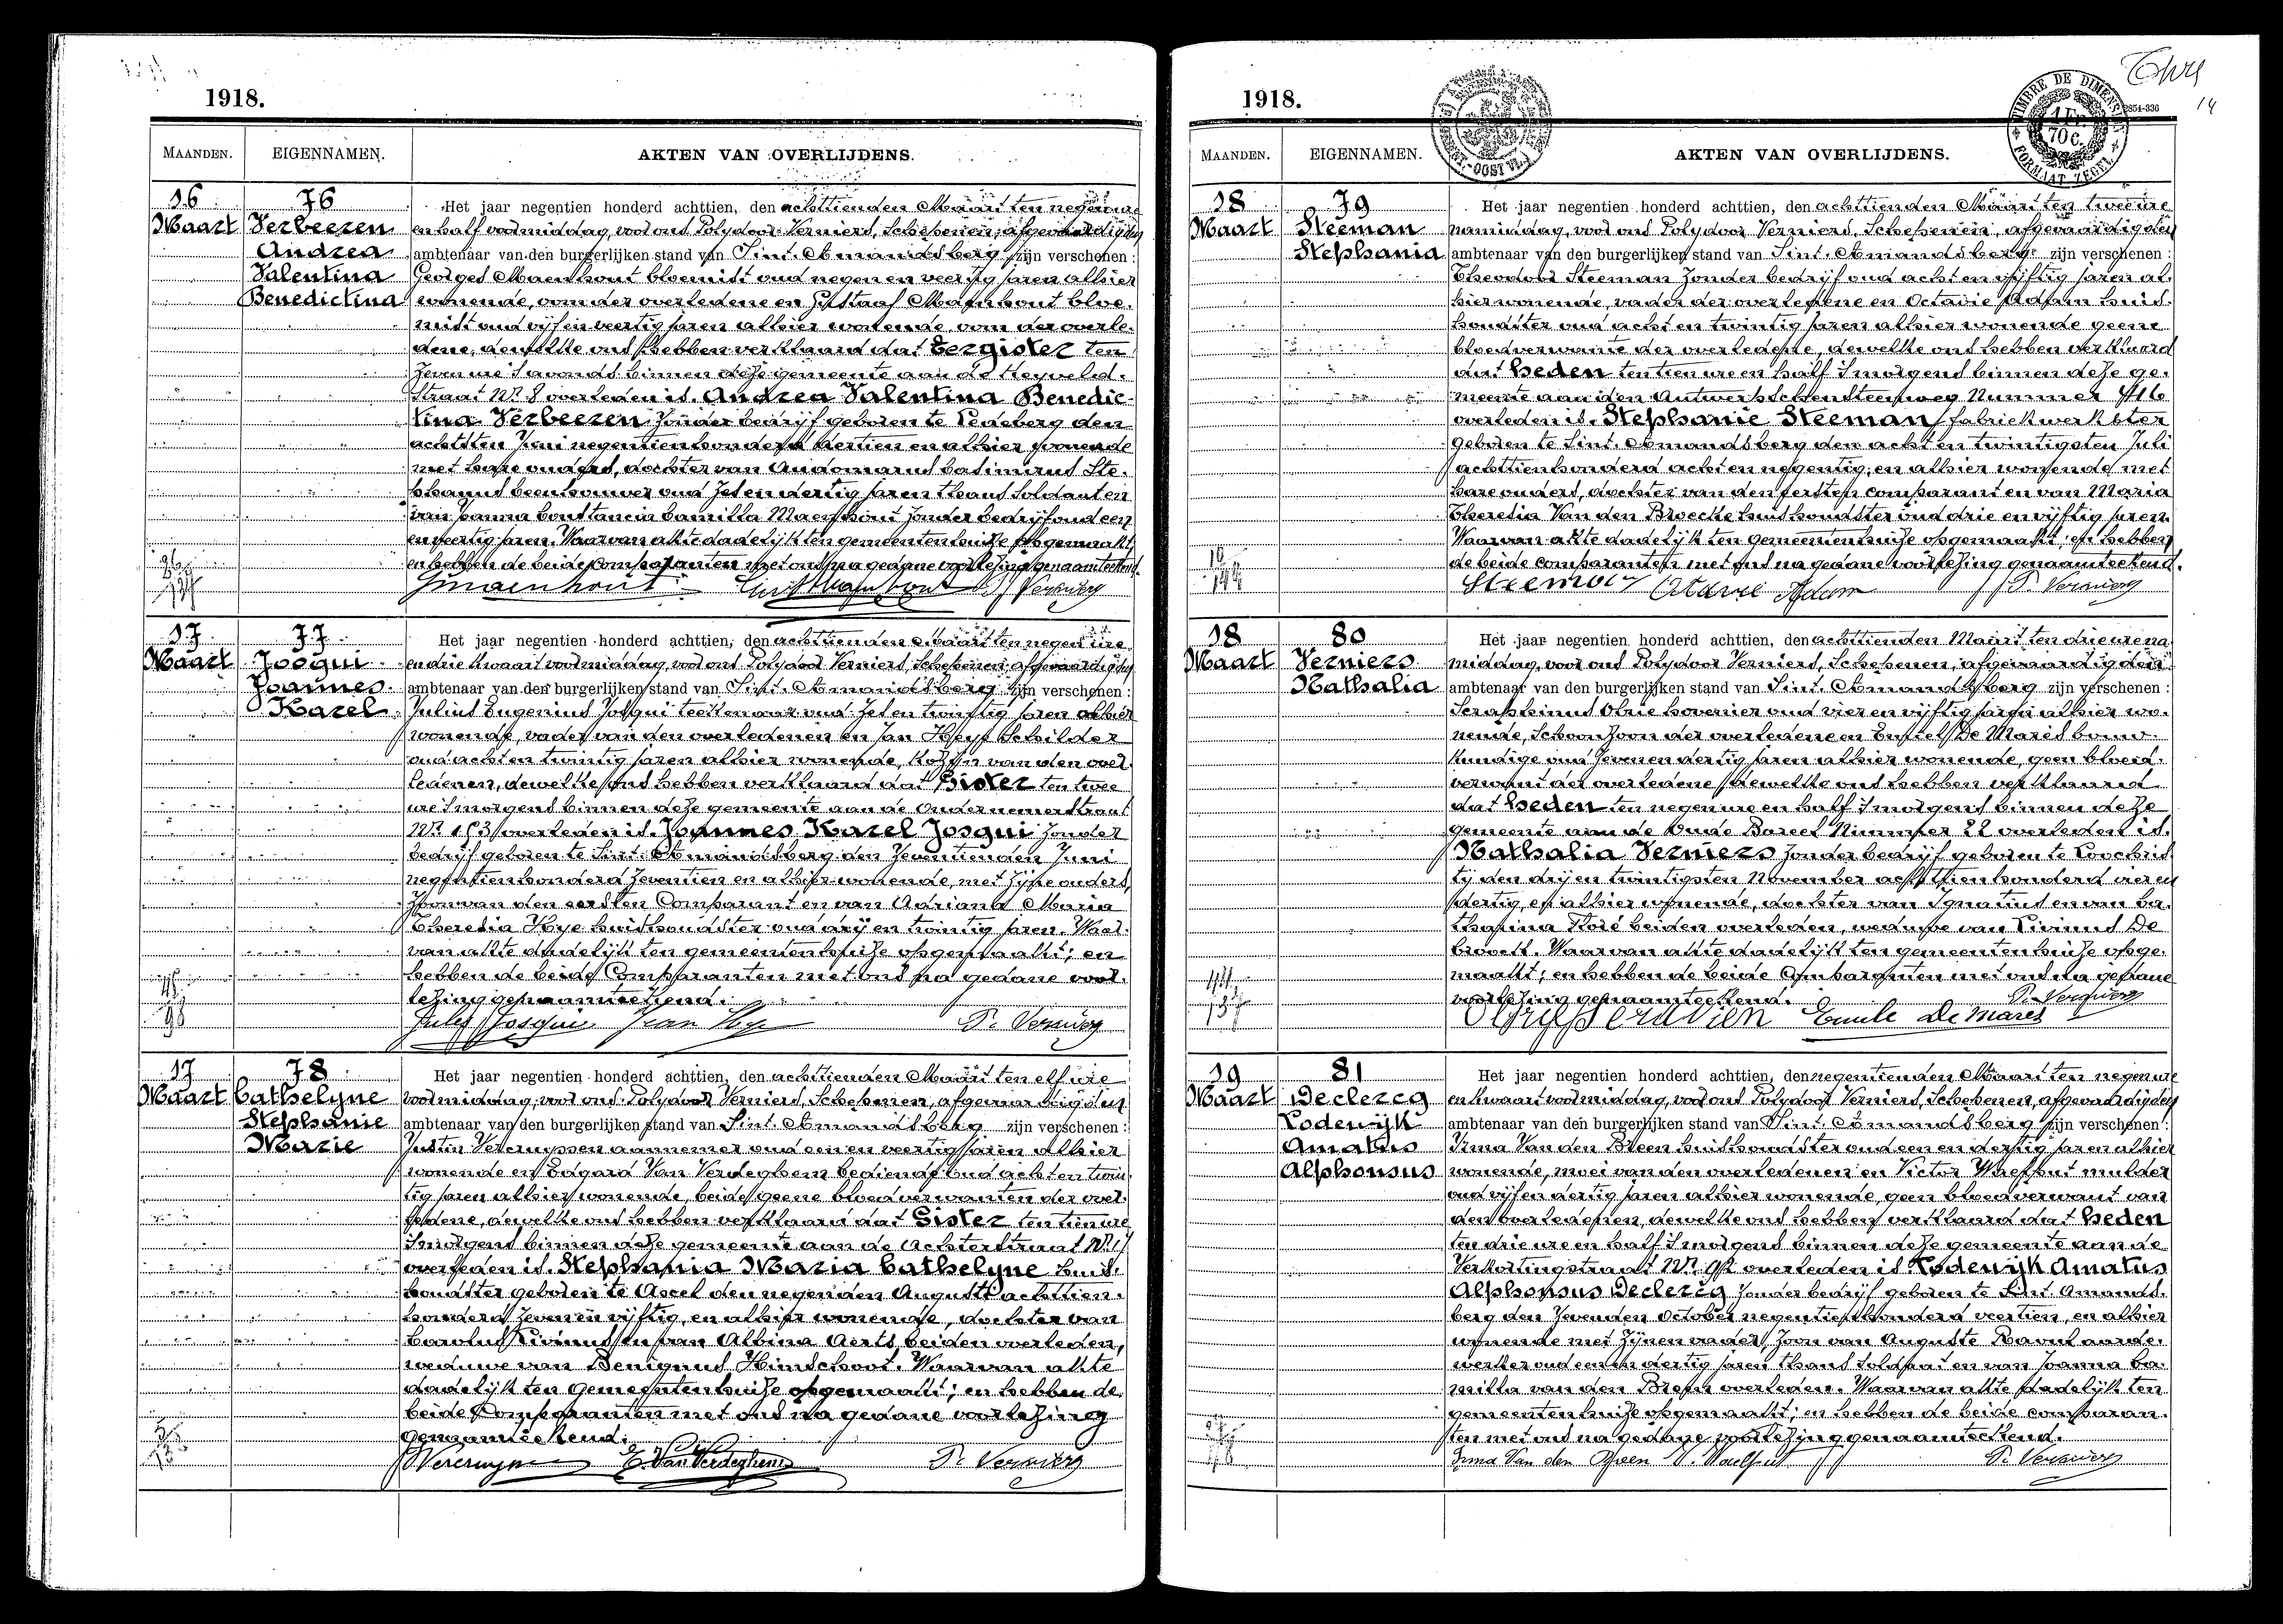 1918.
MAANDEN. EIGENNAMEN. AKTEN VAN OVERLIJDENS.
16 76
Maart Verbeeren
Andrea
Valentina
Benedictina
Het jaar negentien honderd achttien, den achttienden Maart ten negen ure
en half voormiddag, voor ons Polydoor Verniers, Schepenen, afgevaardigden
ambtenaar van den burgerlijken stand van Sint. Amandsberg zijn verschenen :
Georges Maenhout bloemist oud negen en veertig jaren alhier
wonende, oom der overledene en Gustaaf Maenhout bloe-
mist oud vijf en veertig jaren alhier wonende, oom der overle-
dene, dewelke ons hebben verklaard dat Eergister ten
zeven ure 's avonds binnen deze gemeente aan de
straat Nr. 8 overleden is. Andrea Valentina Benedic-
tina Verbeeren zonder bedrijf geboren te Ledeberg den
achtsten Juni negentienhonderd dertien en alhier wonende
met hare ouders, dochter van Audomarus Casimirus Ste-
phanus beenhouwer oud zes en dertig jaren thans Soldaat en
van Joanna Constancia Camilla Maenhout zonder bedrijf oud een
en veertig jaren. Waarvan akte dadelijk ten gemeentenhuize opgemaakt;
en hebben de beide Comparanten met ons na gedane voorlezing genaamteekend.
GMaenhout P. Verniers
17 77
Maart Josqui
Joannes
Karel
Het jaar negentien honderd achttien, den achttienden Maart ten negen ure
en drie kwaart voormiddag, voor ons Polydoor Verniers, Schepenen, afgevaardigden
ambtenaar van den burgerlijken stand van Sint. Amandsberg zijn verschenen :
Julius Eugenius Josqui teekenaar oud zes en twintig jaren alhier
wonende, vader van den overledenen en Jan Schilder
oud acht en twintig jaren alhier wonende, kozijn van den over-
ledenen, dewelke ons hebben verklaard dat Gister ten twee
ure 's morgens binnen deze gemeente aan de Ondernemerstraat
Nr. 163 overleden is. Joannes Karel Josqui zonder
bedrijf geboren te Sint. Amandsberg den zeventienden Juni
negentienhonderd zeventien en alhier wonende, met zijne ouders,
zoon van den eersten Comparant en van Adriana Maria
Theresia Hye huishoudster oud drij en twintig jaren. Waar-
van akte dadelijk ten gemeentenhuize opgemaakt; en
hebben de beide Comparanten met ons na gedane voor-
lezing genaamteekend.
Jules Josqui Jean P. Verniers
17 78
Maart Cathelyne
Stephanie
Marie
Het jaar negentien honderd achttien, den achttienden Maart ten elf ure
voormiddag, voor ons Polydoor Verniers, Schepenen, afgevaardigden
ambtenaar van den burgerlijken stand van Sint. Amandsberg zijn verschenen :
Justin Vercruyssen aannemer oud een en veertig jaren alhier
wonende en Edgard Van Verdeghem bediende oud acht en twin-
tig jaren alhier wonende, beide geene bloedverwanten der over-
ledene, dewelke ons hebben verklaard dat Gister ten tien ure
's morgens binnen deze gemeente aan de Achterstraat Nr. 17
overleden is. Stephania Maria Cathelyne huis-
houdster geboren te Ascel den negenden Augusti achttien-
honderd zeven en vijftig, en alhier wonende, dochter van
Carolus Livinus en van Albina Aerts beiden overleden,
weduwe van Benignus Himschoot. Waarvan akte
dadelijk ten gemeentenhuize opgemaakt; en hebben de
beide Comparanten met ons na gedane voorlezing
genaamteekend.
E. Van Verdeghem P. Verniers
1918.
TIMBRE DE DIMENSION
1 Fr. 70 C.
FORMAAT ZEGEL
14
MAANDEN. EIGENNAMEN. AKTEN VAN OVERLIJDENS.
18 79
Maart Steeman
Stephania
Het jaar negentien honderd achttien, den achttienden Maart ten twee ure
namiddag, voor ons Polydoor Verniers, Schepenen, afgevaardigden
ambtenaar van den burgerlijken stand van Sint. Amandsberg zijn verschenen :
Theodoor Steeman zonder bedrijf oud acht en vijftig jaren al-
hier wonende, vader der overledene en Octavie Adam huis-
houdster oud acht en twintig jaren alhier wonende geene
bloedverwante der overledene, dewelke ons hebben verklaard
dat heden ten tien ure en half 's morgens binnen deze ge-
meente aan den Antwerpschensteenweg Nummer
overleden is. Stephanie Steeman fabriekwerkster
geboren te Sint. Amandsberg den acht en twintigsten Juli
achttienhonderd acht en negentig, en alhier wonende met
hare ouders, dochter van den eersten comparant en van Maria
Theresia Van den Broecke huishoudster oud drie en vijftig jaren.
Waarvan akte dadelijk ten gemeentenhuize opgemaakt; en hebben
de beide comparanten met ons na gedane voorlezing genaamteekend.
Steeman Octavie Adam P. Verniers
18 80
Maart Verniers
Nathalia
Het jaar negentien honderd achttien, den achttienden Maart ten drie ure na-
middag, voor ons Polydoor Verniers, Schepenen, afgevaardigden
ambtenaar van den burgerlijken stand van Sint. Amandsberg zijn verschenen :
Seraphinus hovenier oud vier en vijftig jaren alhier wo-
nende, Schoonzoon der overledene en De Mares bouw-
kundige oud zeven en dertig jaren alhier wonende, geen bloed-
verwant der overledene, dewelke ons hebben verklaard
dat heden ten negen ure en half 's morgens binnen deze
gemeente aan de Oude Bareel Nummer 22 overleden is.
Nathalia Verniers zonder bedrijf geboren te Loochris-
ty den drij en twintigsten November achttienhonderd vier en
dertig, en alhier wonende, dochter van Ignatius en van Ca-
tharina beiden overleden, weduwe van Livinus De
Croock. Waarvan akte dadelijk ten gemeentenhuize opge-
maakt; en hebben de beide Comparanten met ons na gedane
voorlezing genaamteekend. P. Verniers
Emile De Mares
19 81
Maart Declercq
Lodewijk
Amatus
Alphonsus
Het jaar negentien honderd achttien, den negentienden Maart ten negen ure
en kwaart voormiddag, voor ons Polydoor Verniers, Schepenen, afgevaardigden
ambtenaar van den burgerlijken stand van Sint. Amandsberg zijn verschenen :
Irma Van den Breen huishoudster oud een en dertig jaren alhier
wonende, moei van den overledenen en Victor Waelput mulder
oud vijf en dertig jaren alhier wonende, geen bloedverwant van
den overledenen, dewelke ons hebben verklaard dat heden
ten drie ure en half 's morgens binnen deze gemeente aan de
Verkortingstraat Nr. overleden is Lodewijk Amatus
Alphonsus Declercq zonder bedrijf geboren te Sint. Amands-
berg den zevenden October negentienhonderd veertien, en alhier
wonende met zijnen vader, zoon van Auguste Raoul aarde-
werker oud een en dertig jaren thans soldaat en van Joanna Ca-
milla van den Breen overleden. Waarvan akte dadelijk ten
gemeentenhuize opgemaakt; en hebben de beide comparan-
ten met ons na gedane voorlezing genaamteekend.
Irma Van den Breen V. Waelput P. Verniers